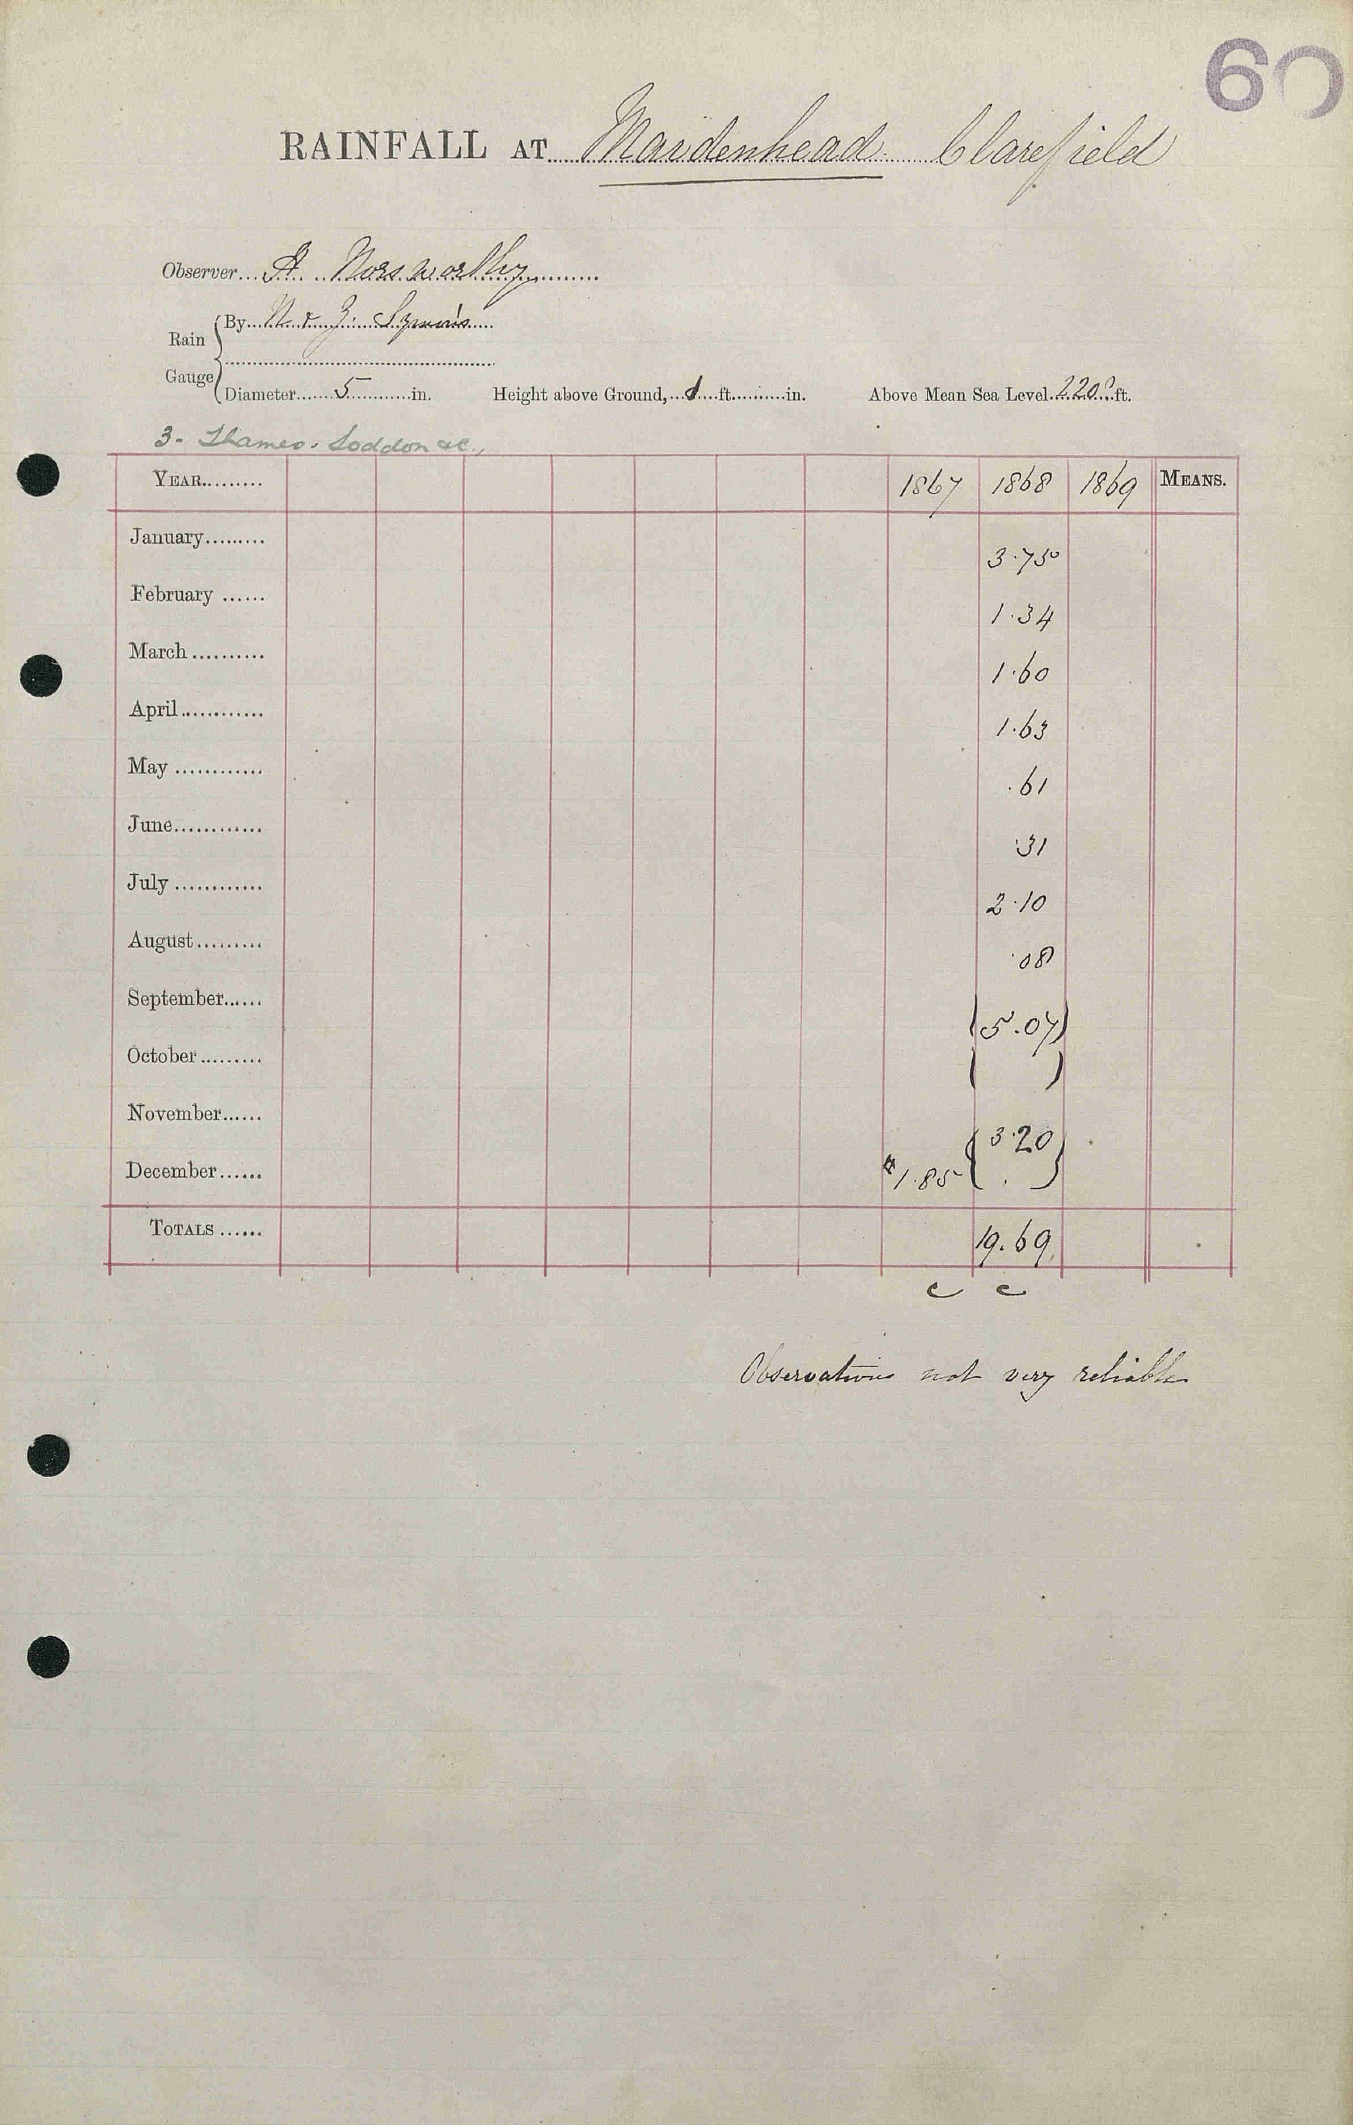 60
RAINFALL AT Maidenhead Clarefield
Observer A Norsworthy
Rain Gauge
By N & Z.
Diameter 5 in. Height above Ground, 1 ft. in. Above Mean Sea Level 220? ft.
3. Thames, Loddon &c.
YEAR 1867 1868 1869 MEANS.
January 3.75
February 1.34
March 1.60
April 1.63
May .61
June .31
July 2.10
August .08
September (5.07)
October ( )
November 3.20
December 1.85
TOTALS 19.69
c c
Observations not very reliable